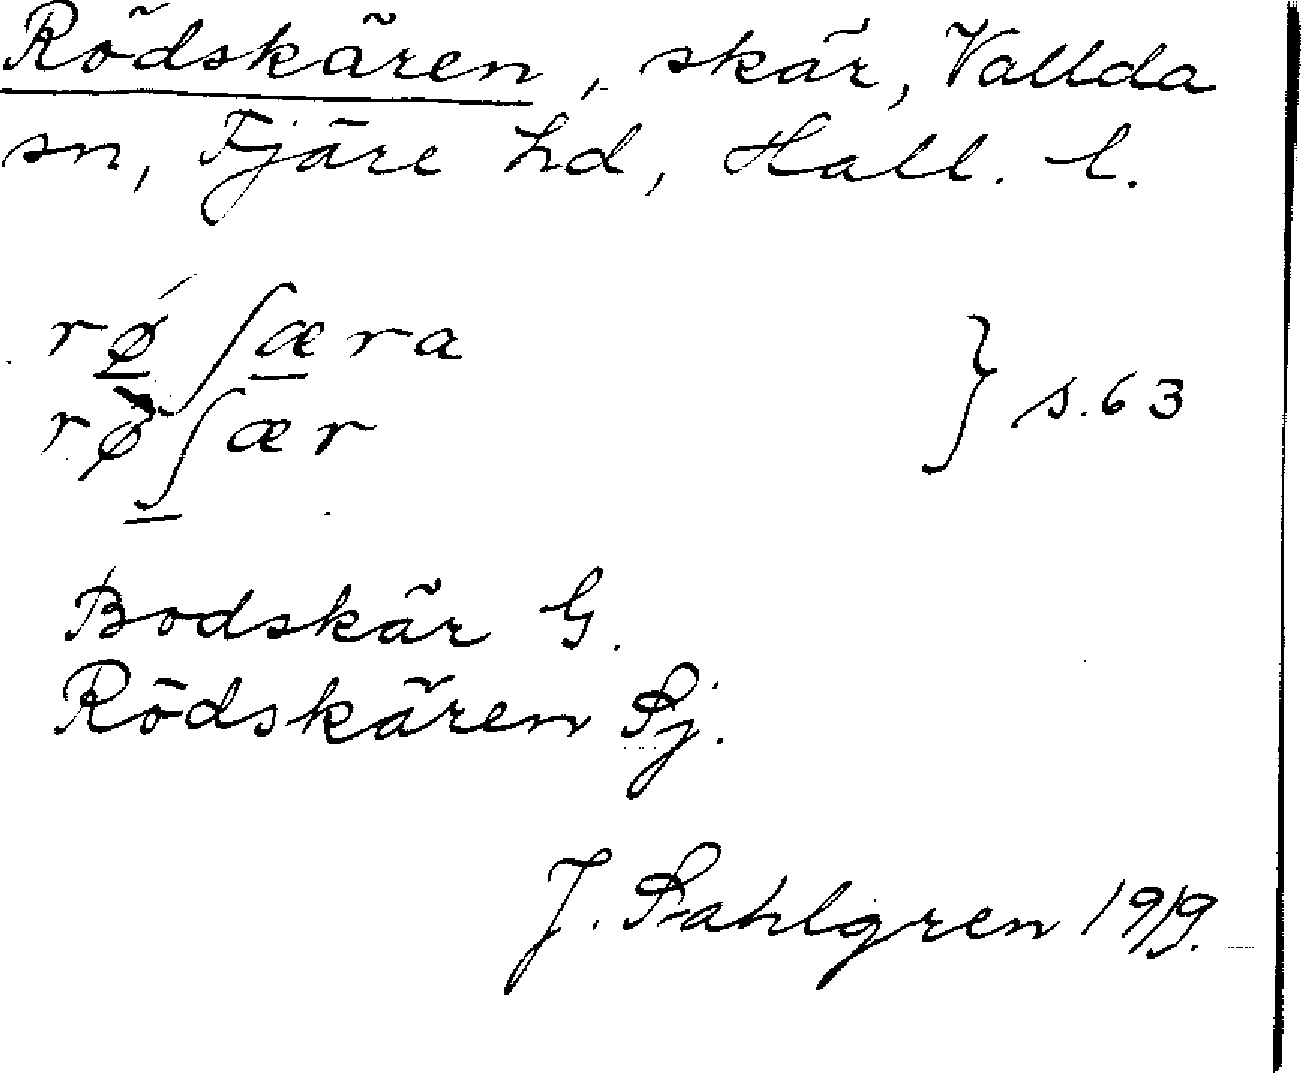 Rödskären, skär, Vallda
sn, Fjäre hd, Hall. l.
rǿ ʃæra
rø̀ʃær
} s. 63
Bodskär G.
Rödskären Sj.
J. Sahlgren 1919.